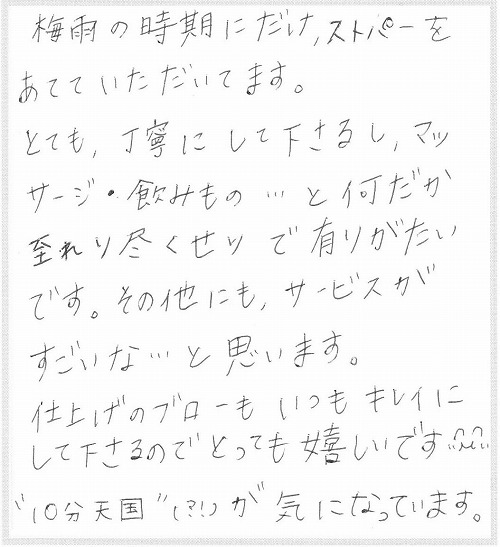 梅雨の時期にだけ,ストパーを
あてていただいてます。
とても,丁寧にして下さるし,マッ
サージ・飲みもの…と何だか
至れり尽くせりで有りがたい
です。その他にも,サービスが
すごいな…と思います。
仕上げのブローもいつもキレイに
して下さるのでとっても嬉しいです
"10分天国"(?!)が気になっています。